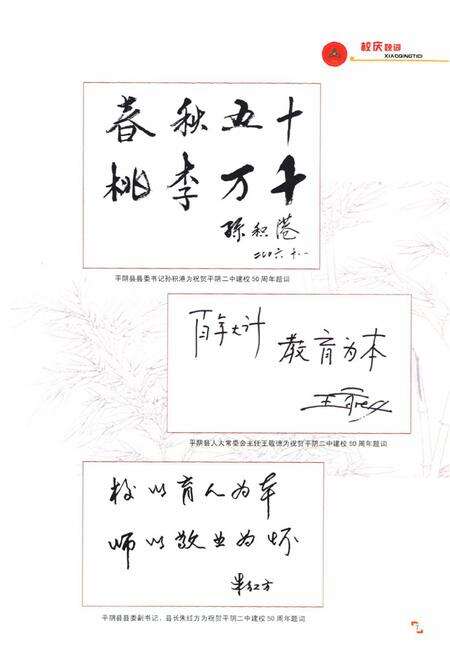 校庆题词
XIAOQINGTICI
春秋五十
桃李万千
孙积港
二〇〇六.十.一
平阴县县委书记孙积港为祝贺平阴二中建校50周年题词
百年大计
教育为本
平阴县人大常委会主任王敬德为祝贺平阴二中建校50周年题词
校以育人为本
师以敬业为怀
朱红方
平阴县县委副书记、县长朱红方为祝贺平阴二中建校50周年题词